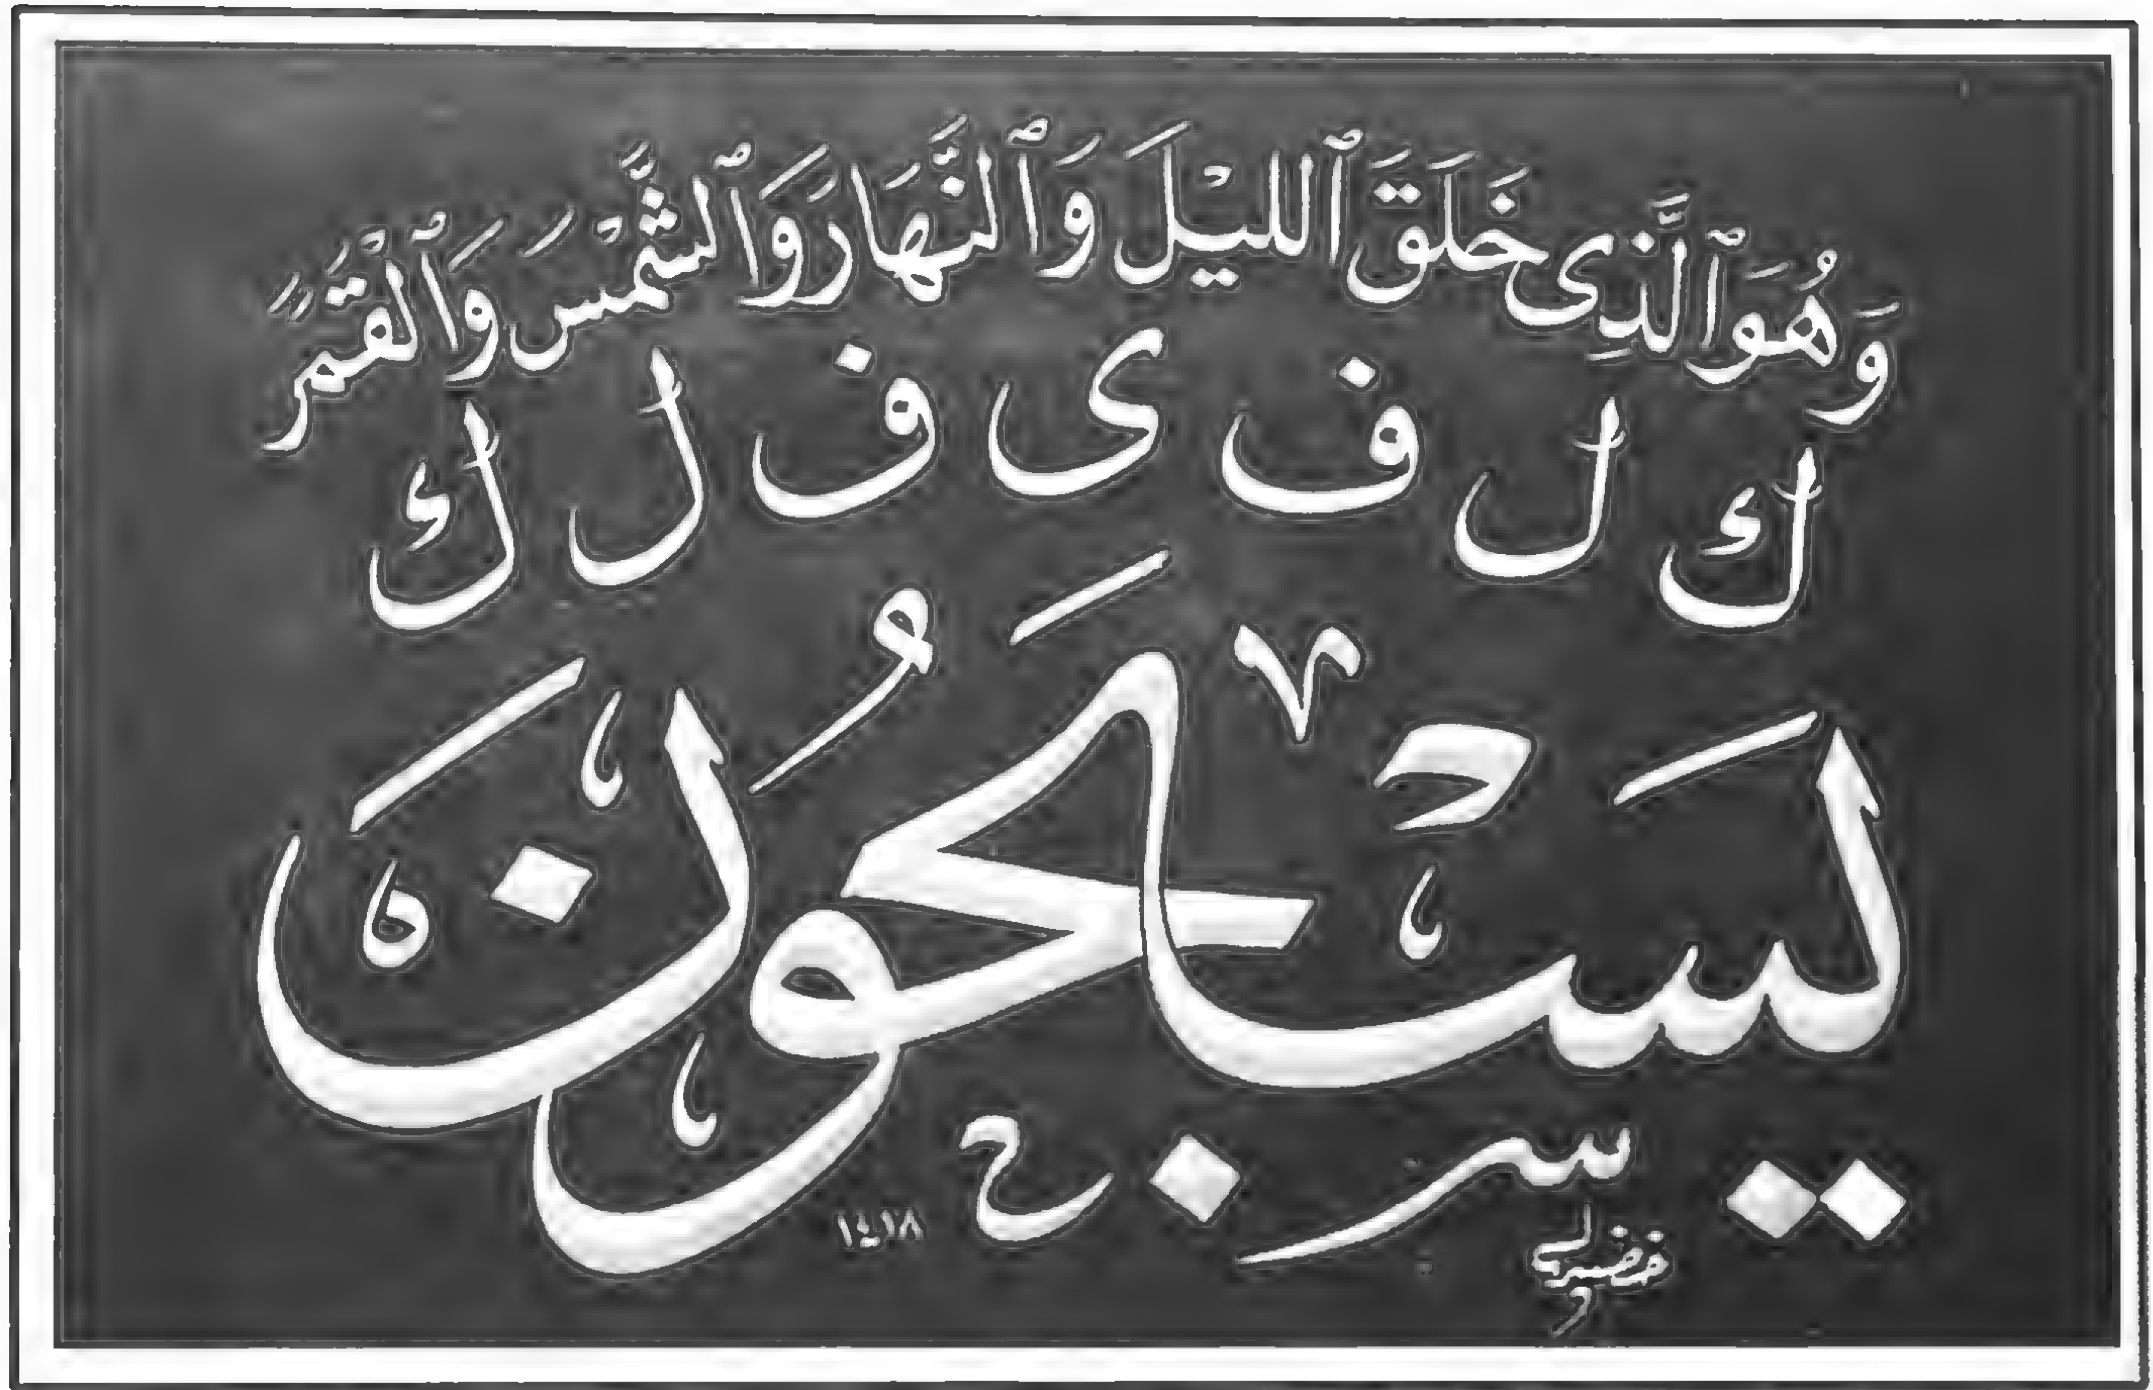 وَهُوَ ٱلَّذِى خَلَقَ ٱلليْلَ وَٱلنَّهَارَ وَٱلشَّمْسَ وَٱلْقَمَرَ
ك ل ف ى ف ل ك
يَسْبَحُونَ
١٤١٨